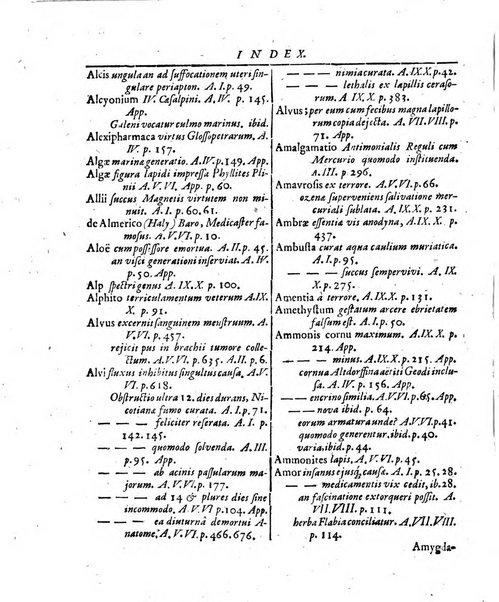 INDEX.
Alcis ungula an ad suffocationem uteri sin-
gulare periapton. A. I. p. 49.
Alcyonium IV. Cæsalpini. A. IV. p. 145.
App.
Galeni vocatur culmo marinus. ibid.
Alexipharmaca virtus Glossopetrarum. A.
IV. p. 157.
Algæ marinæ generatio. A. IV. p. 149. App.
Algæ figura lapidi impressa Phyllites Pli-
nii A. V. VI. App. p. 60.
Allii succus Magnetis virtutem non mi-
nuit. A. I. p. 60. 61.
de Almerico (Haly) Baro, Medicaster fa-
mosus. A. V. VI. p. 10.
Aloë cum possissore emortua. A. II. p. 45.
an visci generationi inserviat. A. IV.
p. 50. App.
Alp spectri genus A. IX. X. p. 100.
Alphito terriculamentum veterum A. IX.
X. p. 91.
Alvus excernit sanguinem menstruum. A.
V. VI. p. 457.
rejicit pus in brachii tumore colle-
ctum. A. V. VI. p. 635. A. II. p. 6.
Alvi fluxus inhibitus singultus causa, A. V
VI. p. 618.
Obstructio ultra 12. dies durans, Ni-
cotianæ fumo curata. A. I. p. 71.
— — — feliciter reserata. A. I. p.
142. 145.
— — — quomodo solvenda. A. III.
p. 95. App.
— — — ab acinis passularum ma-
jorum. A. V. VI. p. 87.
— — — ad 14 & plures dies sine
incommodo. A. V VI p. 104. App.
— — — ea diuturna demortui A-
natome. A. V VI. p. 466. 676.
— — — nimia curata. A. IX. X. p. 42.
— — — lethalis ex lapillis ceraso-
rum. A IX. X. p. 383.
Alvus; per eum cum fecibus magna lapillo-
rum copia dejecta. A. VII. VIII. p.
71. App.
Amalgamatio Antimonialis Reguli cum
Mercurio quomodo instituenda.
A. III. p. 296.
Amavrosis ex terrore. A. V VI. p. 66.
ozæna superveniens salivatione mer-
curiali sublata. A. IX. X. p. 231.
Ambræ essentia vix anodyna, A. IX. X. p.
437.
Ambusta curat aqua caulium muriatica.
A. I. p. 95.
— — — succus sempervivi. A. IX
X. p. 275.
Amentia à terrore. A. IX. X. p. 131.
Amethystum gestatum arcere ebrietatem
falsum est. A. I. p. 50
Ammonis cornu maximum. A. IX. X. p.
214. App.
— — — minus. A. IX. X. p. 215. App.
cornua Altdorffina aëri Geodi inclu-
sa. A. IV. p. 156. App.
— — encrino similia. A. V VI. p. 65. App.
— — nova ibid. p. 64.
eorum armatura unde? A. V VI. p. 41.
quomodo generentur. ibid. p. 40.
varia. ibid. p. 44.
Ammonites lapis. A, V VI. p. 45.
Amor insanus ejusq; causa. A. I p. 25. 28.
— — medicamentis vix cedit, ib. 28.
an fascinatione extorqueri possit. A.
VII. VIII. p. 111.
herba Flabia conciliatur. A. VII. VIII
p. 114.
Amygda-